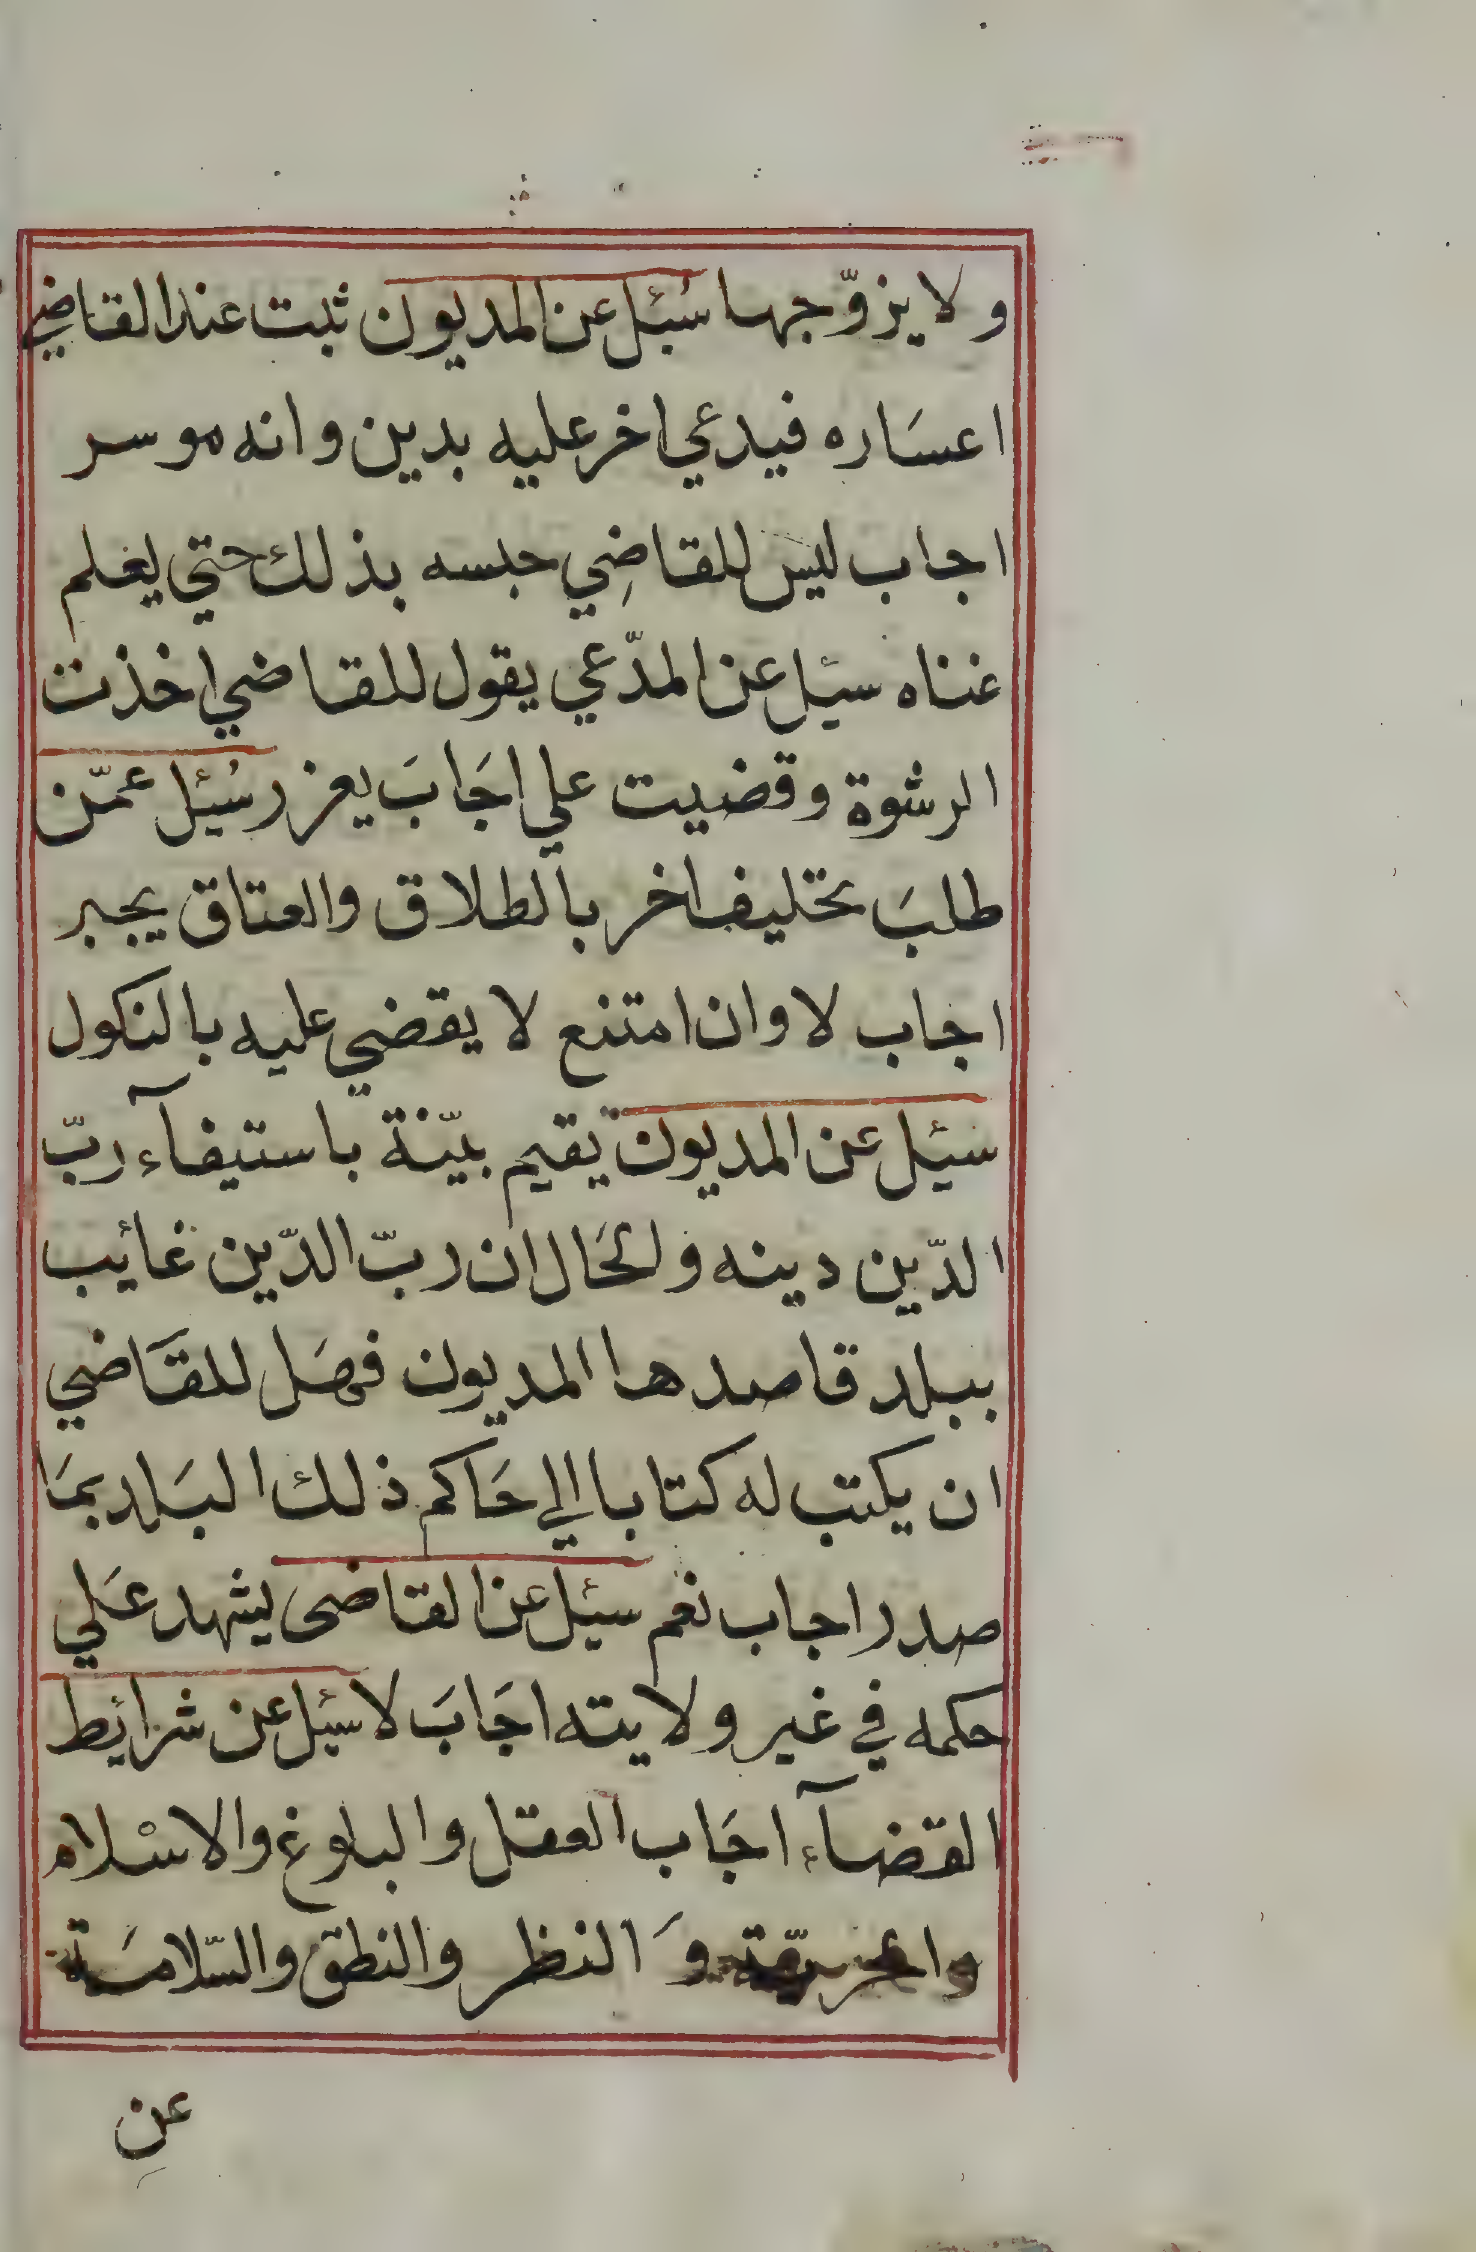 ولا يزوّجها سُئل عن المديون ثبت عند القاضي
اعسَاره فيدعي اخر عليه بدين وانه موسر
اجاب ليس للقاضِي حبسه بذلك حتي يعلم
غناه سئل عن المدّعي يقول للقاضي اخذت
الرشوة وقضيت علي اجَابَ يعزر سُئل عمّن
طلبَ تحليف اخر بالطلاق والعتاق يجبر
اجاب لا وان امتنع لا يقضي عليه بالنكول
سئل عن المديون يقيم بيّنة باستيفآء ربّ
الدّين دينه والحَال ان ربّ الدّين غائب
ببلد قاصدها المديون فهَل للقَاضي
ان يكتب له كتابا الي حَاكم ذلك البَلد بمَا
صدر اجاب نعم سئل عن القاضى يشهد عَلي
حكمه في غير ولايته اجَابَ لا سئل عن شرائط
القضآء اجَاب العقل والبلوغ والاسْلام
والحريّة وَالنظر والنطق والسّلامَة
عن